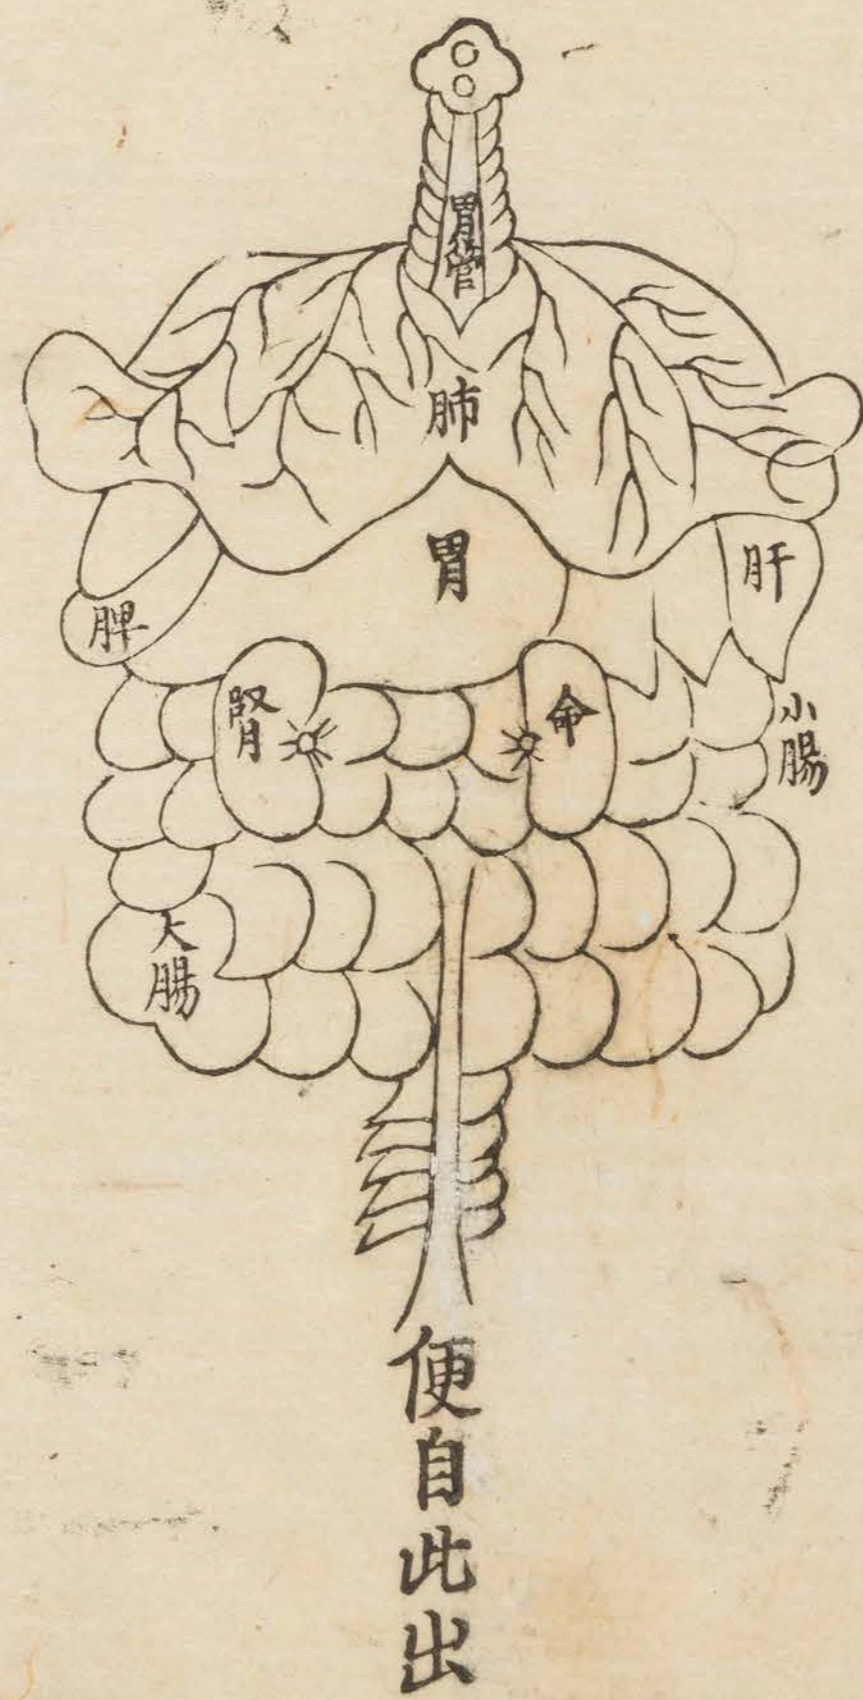 胃管
肺
胃
肝
脾
腎
命
小腸
大腸
便自此出